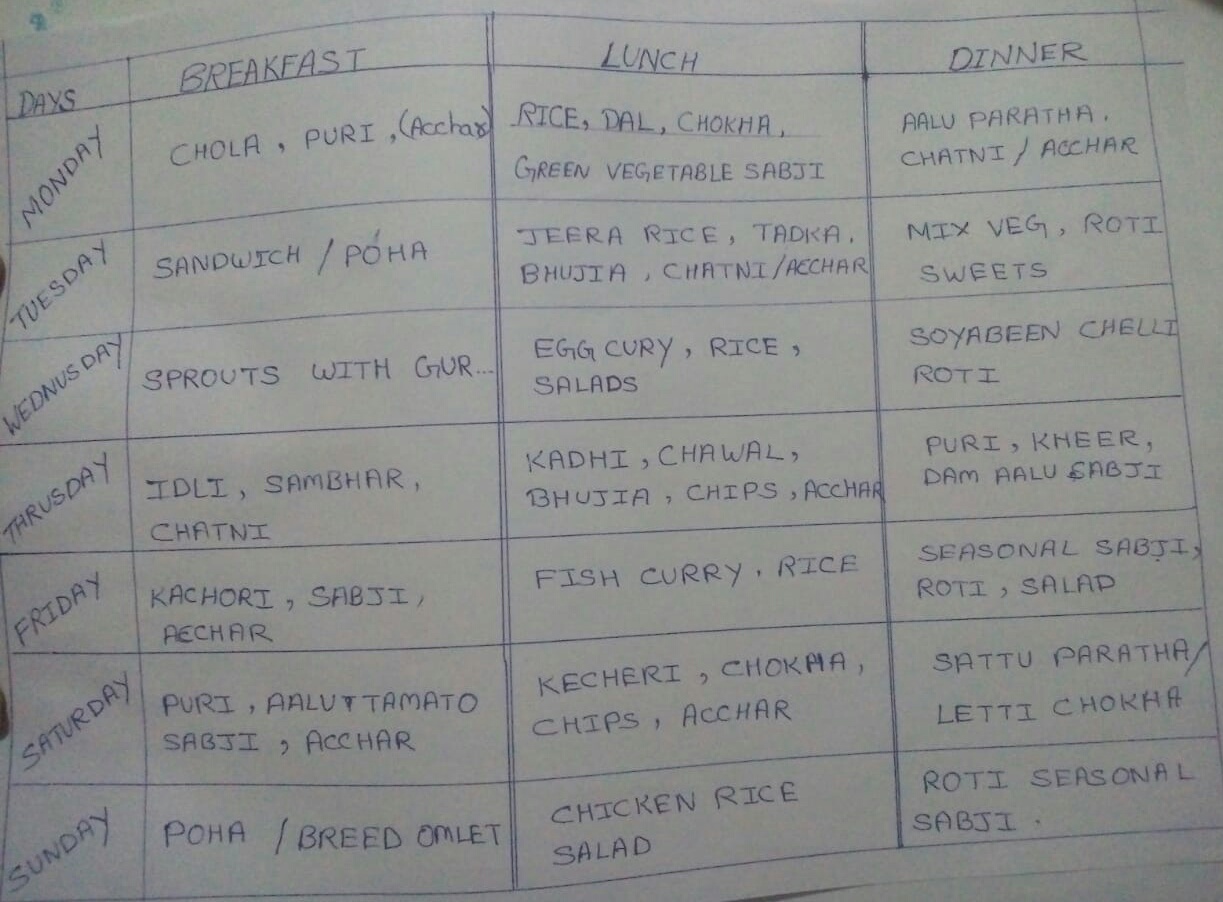 DAYS BREAKFAST LUNCH DINNER
MONDAY
CHOLA , PURI , (Acchar)
RICE, DAL, CHOKHA,
GREEN VEGETABLE SABJI
AALU PARATHA,
CHATNI / ACCHAR
TUESDAY
SANDWICH / POHA
JEERA RICE, TADKA,
BHUJIA , CHATNI/ACCHAR
MIX VEG, ROTI
SWEETS
WEDNUSDAY
SPROUTS WITH GUR...
EGG CURY , RICE ,
SALADS
SOYABEEN CHELLI
ROTI
THRUSDAY
IDLI , SAMBHAR ,
CHATNI
KADHI , CHAWAL,
BHUJIA , CHIPS , ACCHAR
PURI , KHEER,
DAM AALU SABJI
FRIDAY
KACHORI , SABJI ,
AECHAR
FISH CURRY , RICE
SEASONAL SABJI,
ROTI , SALAD
SATURDAY
PURI , AALU + TAMATO
SABJI , ACCHAR
KECHERI , CHOKHA,
CHIPS , ACCHAR
SATTU PARATHA/
LETTI CHOKHA
SUNDAY
POHA / BREED OMLET
CHICKEN RICE
SALAD
ROTI SEASONAL
SABJI .